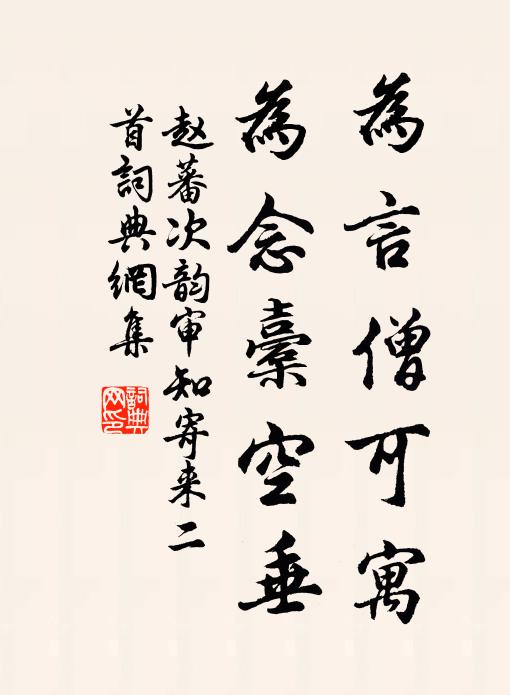 為言僧可寓
為念橐空垂
赵蕃次韵审知寄来二
首詞典網集
詞典
网印